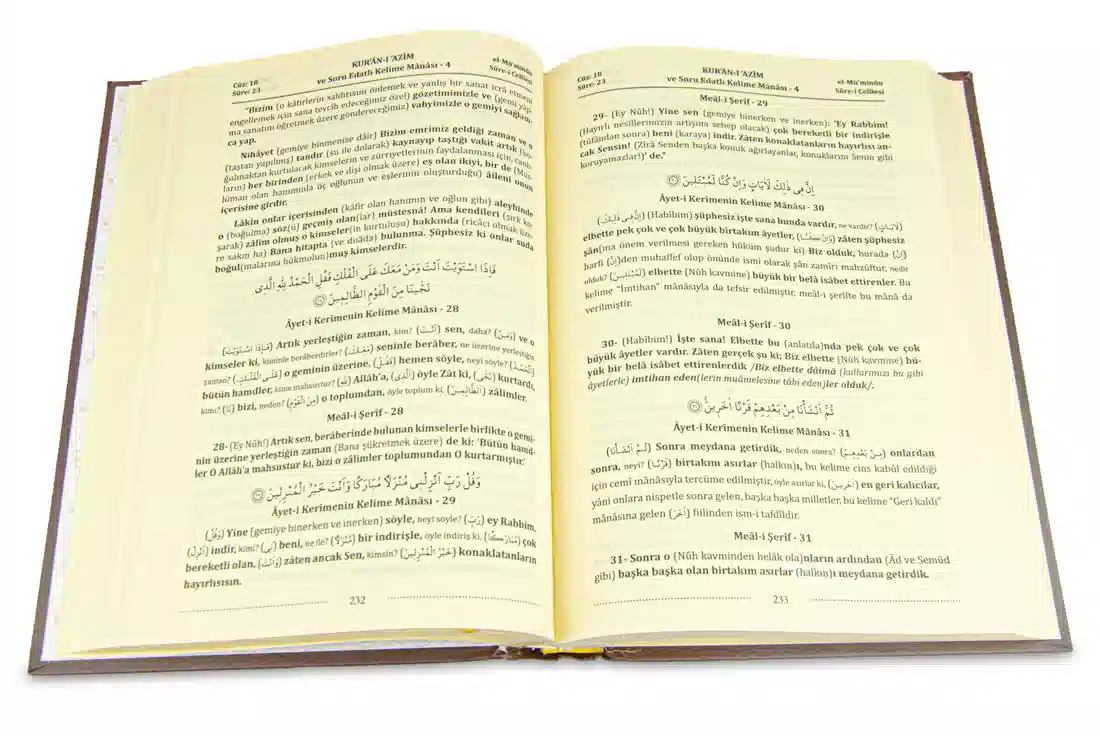 Cüz: 18
Sûre: 23
KUR'ÂN-I 'AZÎM
ve Soru Edatlı Kelime Mânâsı - 4
el-Mü'minûn
Sûre-i Celîlesi
"Bizim (o kâfirlerin saldırısını önlemek ve yanlış bir sanat icrâ etmeni
engellemek için sana tevcîh edeceğimiz özel) gözetimimizle ve (gemi yap-
ma sanatını öğretmek üzere göndereceğimiz) vahyimizle o gemiyi sağlam-
ca yap.
Nihâyet (gemiye binmenize dâir) Bizim emrimiz geldiği zaman ve o
(taştan yapılmış) tandır (su ile dolarak) kaynayıp taştığı vakit artık (bo-
ğulmaktan kurtulacak kimselerin ve zürriyetlerinin faydalanması için, canlı-
ların) her birinden (erkek ve dişi olmak üzere) eş olan ikiyi, bir de (Müs-
lüman olan hanımınla üç oğlunun ve eşlerinin oluşturduğu) âileni onun
içerisine girdir.
Lâkin onlar içerisinden (kâfir olan hanımın ve oğlun gibi) aleyhinde
o (boğulma) söz(ü) geçmiş olan(lar) müstesnâ! Ama kendileri (şirk ko-
şarak) zâlim olmuş o kimseler(in kurtuluşu) hakkında (ricâcı olmak üze-
re sakın ha) Bana hitapta (ve duâda) bulunma. Şüphesiz ki onlar suda
boğul(malarına hükmolun)muş kimselerdir.
فَاِذَا اسْتَوَيْتَ اَنْتَ وَمَنْ مَعَكَ عَلَى الْفُلْكِ فَقُلِ الْحَمْدُ لِلّٰهِ الَّذِى
نَجّٰينَا مِنَ الْقَوْمِ الظَّالِمِينَ ﴿٢٨﴾
Âyet-i Kerîmenin Kelime Mânâsı - 28
(فَاِذَا اسْتَوَيْتَ) Artık yerleştiğin zaman, kim? (اَنْتَ) sen, daha? (وَمَنْ) ve o
kimseler ki, kiminle beraberdirler? (مَعَكَ) seninle berâber, ne üzerine yerleştiğin
zaman? (عَلَى الْفُلْكِ) o geminin üzerine, (فَقُلِ) hemen söyle, neyi söyle? (اَلْحَمْدُ)
bütün hamdler, kime mahsustur? (لِلّٰهِ) Allâh'a, (اَلَّذِى) öyle Zât ki, (نَجّٰى) kurtardı,
kimi? (نَا) bizi, neden? (مِنَ الْقَوْمِ) o toplumdan, öyle toplum ki, (اَلظَّالِمِينَ) zâlimler.
Meâl-i Şerîf - 28
28- (Ey Nûh!) Artık sen, berâberinde bulunan kimselerle birlikte o gemi-
nin üzerine yerleştiğin zaman (Bana şükretmek üzere) de ki: 'Bütün hamd-
ler O Allâh'a mahsustur ki, bizi o zâlimler toplumundan O kurtarmıştır.'
وَقُلْ رَبِّ اَنْزِلْنِى مُنْزَلًا مُبَارَكًا وَاَنْتَ خَيْرُ الْمُنْزِلِينَ ﴿٢٩﴾
Âyet-i Kerîmenin Kelime Mânâsı - 29
(وَقُلْ) Yine (gemiye binerken ve inerken) söyle, neyi söyle? (رَبِّ) ey Rabbim,
(اَنْزِلْ) indir, kimi? (نِى) beni, ne ile? (مُنْزَلًا) bir indirişle, öyle indiriş ki, (مُبَارَكًا) çok
bereketli olan, (وَاَنْتَ) zâten ancak Sen, kimsin? (خَيْرُ الْمُنْزِلِينَ) konaklatanların
hayırlısısın.
232
Cüz: 18
Sûre: 23
KUR'ÂN-I 'AZÎM
ve Soru Edatlı Kelime Mânâsı - 4
el-Mü'minûn
Sûre-i Celîlesi
Meâl-i Şerîf - 29
29- (Ey Nûh!) Yine sen (gemiye binerken ve inerken): 'Ey Rabbim!
(Hayırlı nesillerimizin artışına sebep olacak) çok bereketli bir indirişle
(tûfândan sonra) beni (karaya) indir. Zâten konaklatanların hayırlısı an-
cak Sensin! (Zîrâ Senden başka konuk ağırlayanlar, konuklarını Senin gibi
koruyamazlar!)' de."
اِنَّ فِى ذٰلِكَ لَاٰيَاتٍ وَاِنْ كُنَّا لَمُبْتَلِينَ ﴿٣٠﴾
Âyet-i Kerîmenin Kelime Mânâsı - 30
(اِنَّ فِى ذٰلِكَ) (Habîbim) şüphesiz işte sana bunda vardır, ne vardır? (لَاٰيَاتٍ)
elbette pek çok ve çok büyük birtakım âyetler, (وَاِنْ كُنَّا) zâten şüphesiz
şân(ıma önem verilmesi gereken hüküm şudur ki) Biz olduk, burada (اِنْ)
harfi (اِنَّ)den muhaffef olup önünde ismi olarak şân zamîri mahzûftur, nedir
olduk? (لَمُبْتَلِينَ) elbette (Nûh kavmine) büyük bir belâ isâbet ettirenler. Bu
kelime "İmtihan" mânâsıyla da tefsir edilmiştir, meâl-i şerîfte bu mânâ da
verilmiştir.
Meâl-i Şerîf - 30
30- (Habîbim!) İşte sana! Elbette bu (anlatıla)nda pek çok ve çok
büyük âyetler vardır. Zâten gerçek şu ki; Biz elbette (Nûh kavmine) bü-
yük bir belâ isâbet ettirenlerdik /Biz elbette dâimâ (kullarımızı bu gibi
âyetlerle) imtihan eden(lerin muâmelesine tâbi eden)ler olduk/.
ثُمَّ اَنْشَاْنَا مِنْ بَعْدِهِمْ قَرْنًا اٰخَرِينَ ﴿٣١﴾
Âyet-i Kerîmenin Kelime Mânâsı - 31
(ثُمَّ اَنْشَاْنَا) Sonra meydana getirdik, neden sonra? (مِنْ بَعْدِهِمْ) onlardan
sonra, neyi? (قَرْنًا) birtakım asırlar (halkın)ı, bu kelime cins kabûl edildiği
için cemî mânâsıyla tercüme edilmiştir, öyle asırlar ki, (اٰخَرِينَ) en geri kalıcılar,
yâni onlara nispetle sonra gelen, başka başka milletler, bu kelime "Geri kaldı"
mânâsına gelen (اَخَرَ) fiilinden ism-i tafdîldir.
Meâl-i Şerîf - 31
31- Sonra o (Nûh kavminden helâk ola)nların ardından (Âd ve Semûd
gibi) başka başka olan birtakım asırlar (halkın)ı meydana getirdik.
233